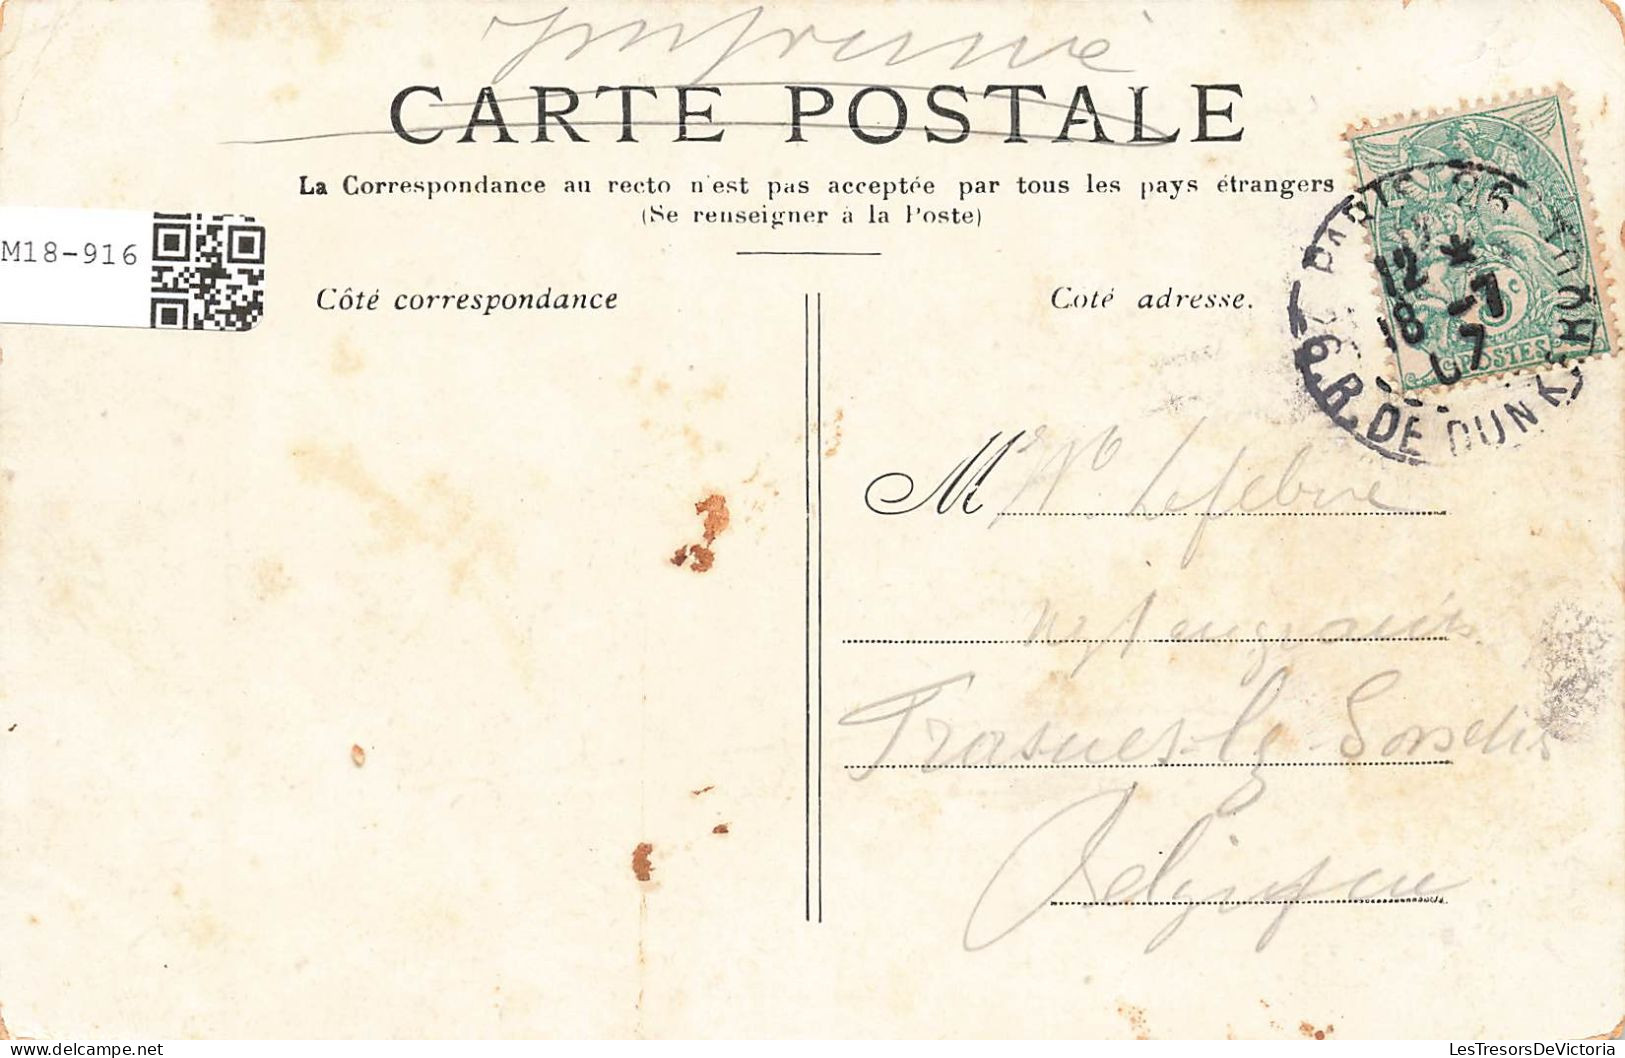 Imprimé
CARTE POSTALE
La Correspondance au recto n'est pas acceptée par tous les pays étrangers
(Se renseigner à la Poste)
M18-916
Côté correspondance
Coté adresse.
PARIS 96
12 *
18 -7
07
R. DE DUNKERQUE
5c
POSTES
Mr Lefebvre
Frasnes-lg
Belgique
LesTresorsDeVictoria